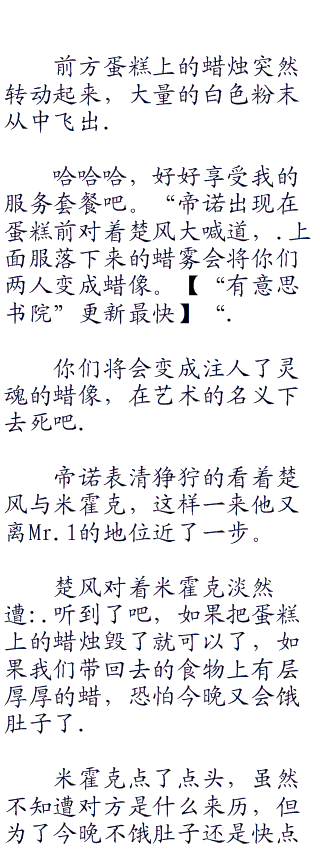 前方蛋糕上的蜡烛突然
转动起来，大量的白色粉末
从中飞出.
哈哈哈，好好享受我的
服务套餐吧。“帝诺出现在
蛋糕前对着楚风大喊道，.上
面服落下来的蜡雾会将你们
两人变成蜡像。【“有意思
书院”更新最快】“.
你们将会变成注人了灵
魂的蜡像，在艺术的名义下
去死吧.
帝诺表清狰狞的看着楚
风与米霍克，这样一来他又
离Mr.1的地位近了一步。
楚风对着米霍克淡然
遭:.听到了吧，如果把蛋糕
上的蜡烛毁了就可以了，如
果我们带回去的食物上有层
厚厚的蜡，恐怕今晚又会饿
肚子了.
米霍克点了点头，虽然
不知遭对方是什么来历，但
为了今晚不饿肚子还是快点